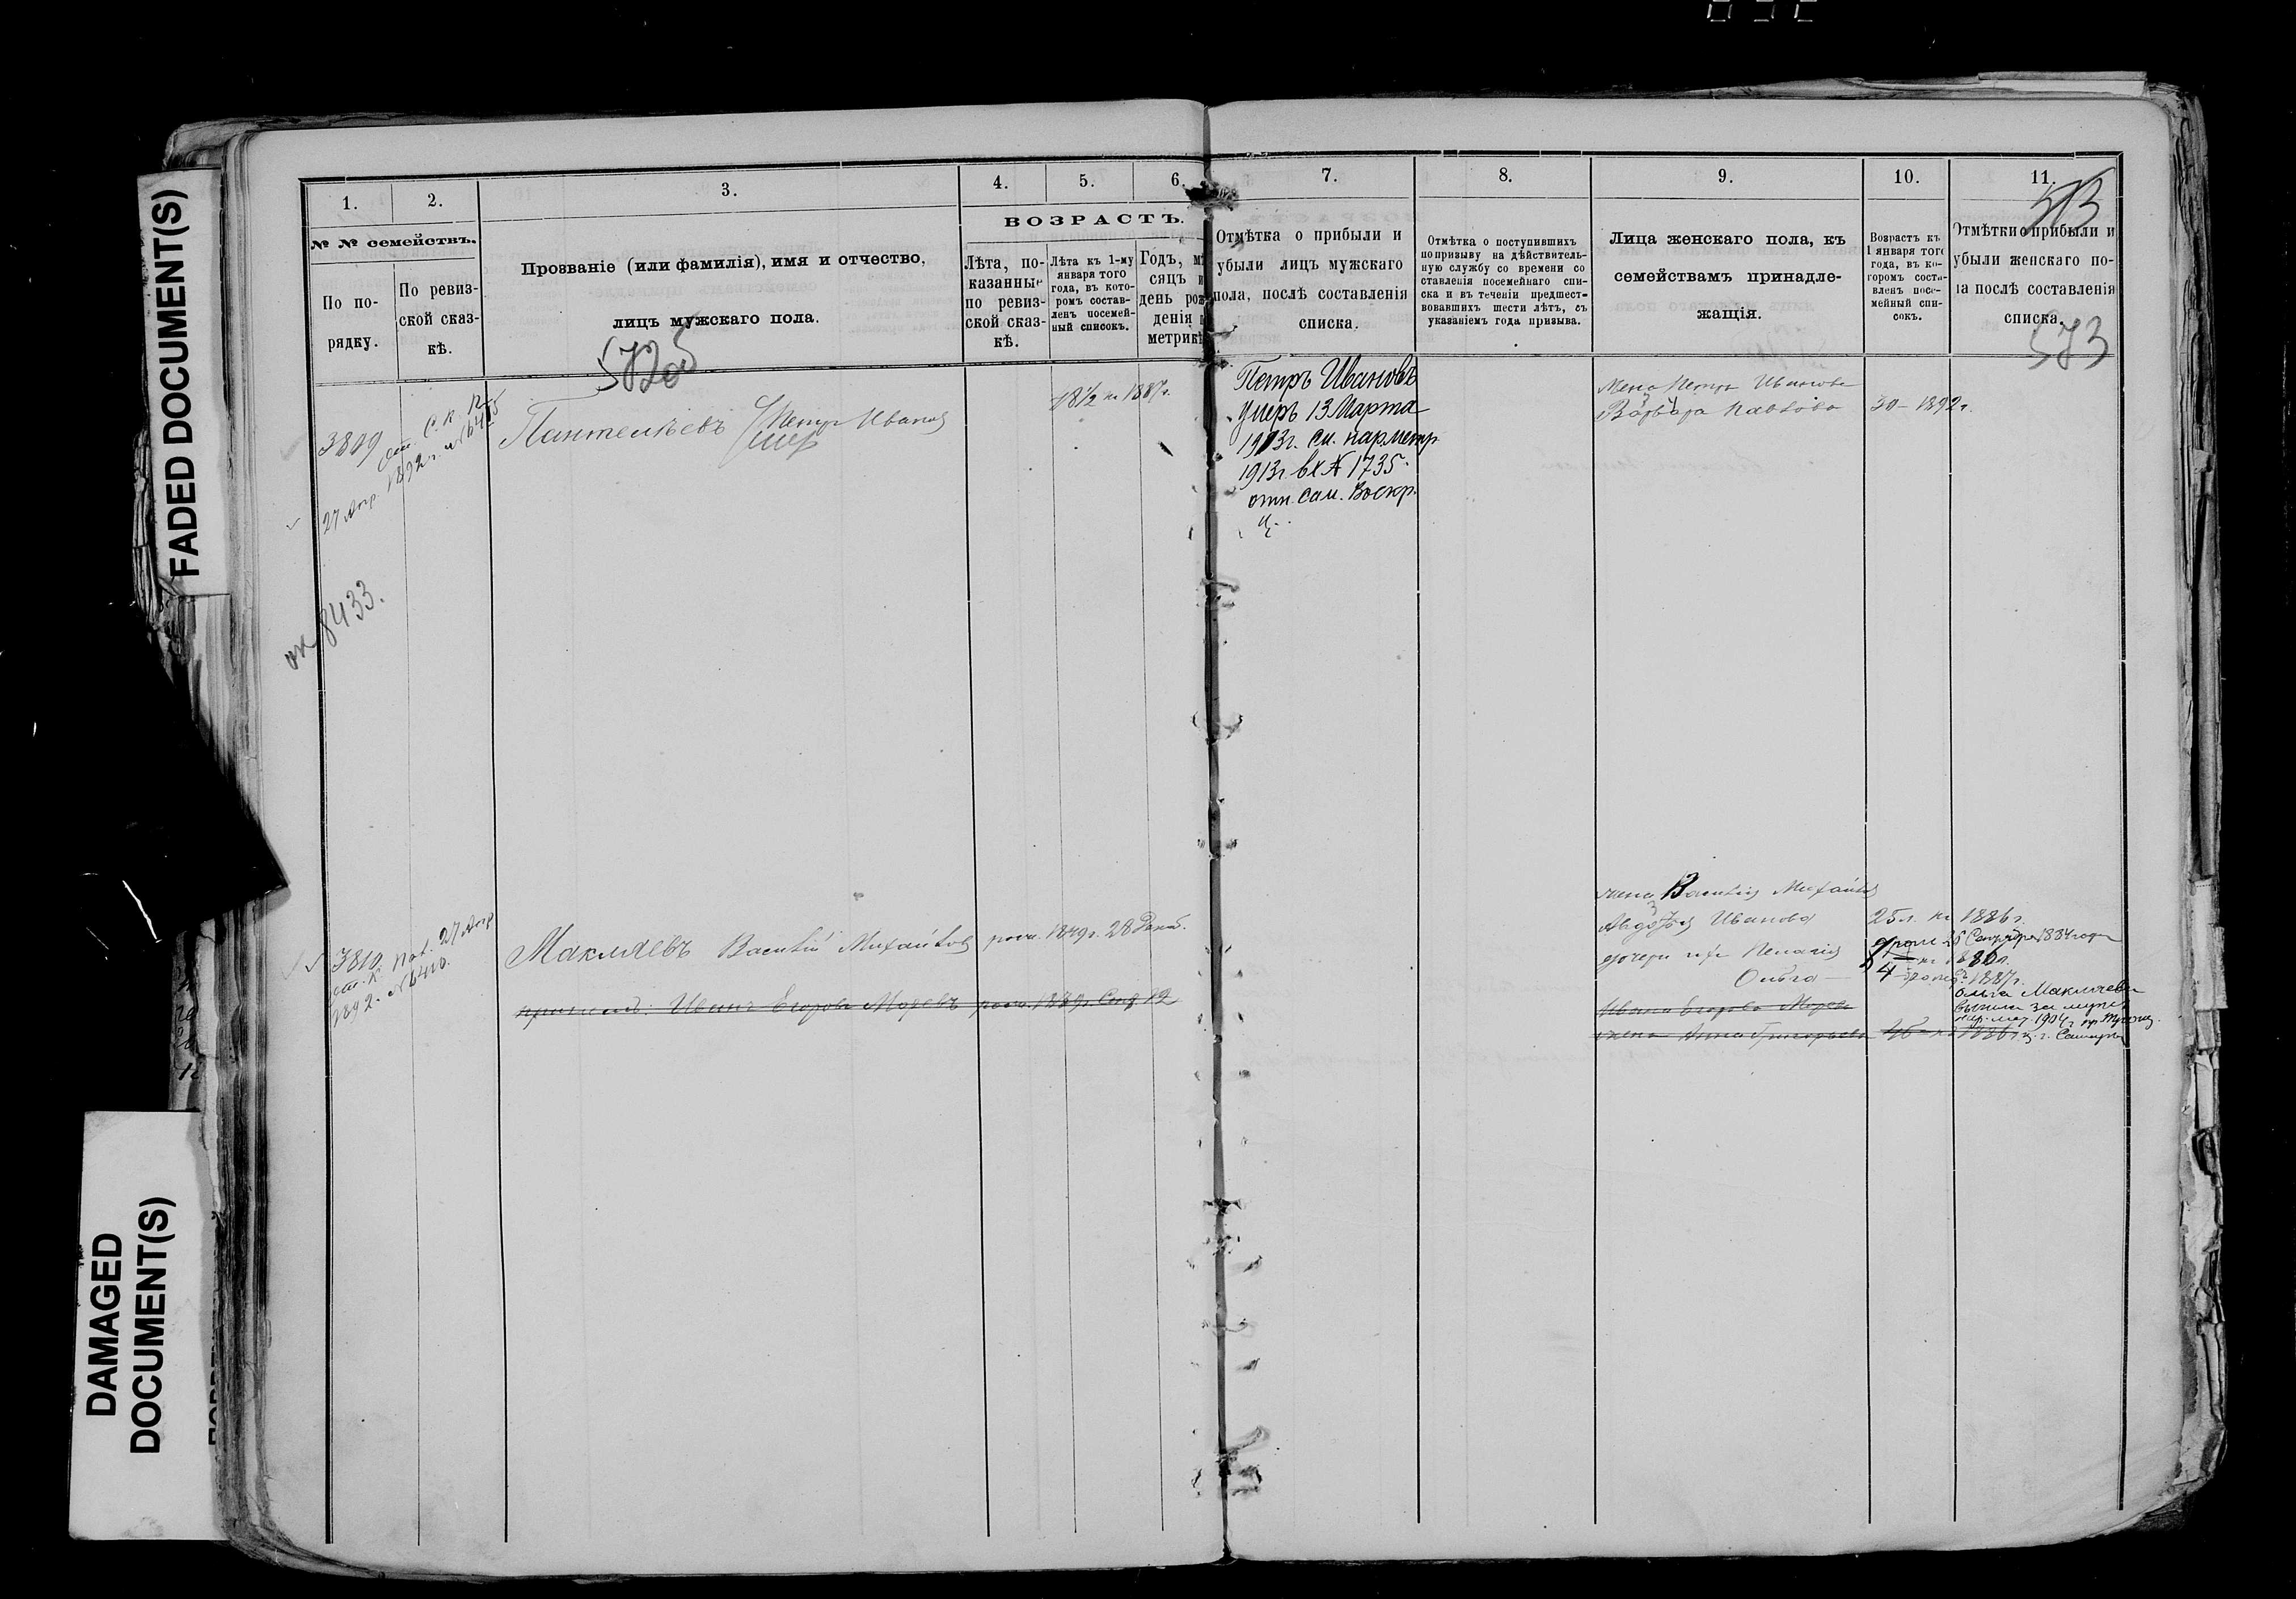 FADED DOCUMENT(S)
DAMAGED
DOCUMENT(S)
1.
2.
3.
4.
5.
6.
7.
8.
9.
10.
11.
573
№ № семействъ.
По по-
рядку.
По ревиз-
ской сказ-
кѣ.
Прозваніе (или фамилія), имя и отчество,
лицъ мужскаго пола.
ВОЗРАСТЪ.
Лѣта, по-
казанные
по ревиз-
ской сказ-
кѣ.
Лѣта къ 1-му
января того
года, въ кото-
ромъ состав-
ленъ посемей-
ный списокъ.
Годъ, мѣ
сяцъ и
день рож
денія п
метрикѣ
Отмѣтка о прибыли и
убыли лицъ мужскаго
пола, послѣ составленія
списка.
Отмѣтка о поступившихъ
по призыву на дѣйствитель-
ную службу со времени со
ставленія посемейнаго спи-
ска и въ теченіи предшест-
вовавшихъ шести лѣтъ, съ
указаніемъ года призыва.
Лица женскаго пола, къ
семействамъ принадле-
жащія.
Возрастъ къ
1 января того
года, въ ко-
торомъ соста-
вленъ посе-
мейный спи-
сокъ.
Отмѣтки о прибыли и
убыли женскаго по-
ла послѣ составленія
списка.
573
3809
27 Апр. 1892 г.
8433.
Пантелѣевъ Петръ Иванов
умер
18½ на 1887г.
Петръ Ивановъ
умеръ 13 Марта
1913г. см. пар. метр
1913г. вх № 1735.
отн. Сам. Воскр.
ц.
жена Петра Иванова
Варвара Павлова
30 – 1892г.
3810
27 Апр
1892. № 6410.
Маклаевъ Василій Михайлов
родил. 1849г. 28 Декаб.
Иванъ Егоровъ Моревъ
жена Василія Михайлов
Авдотья Иванова
25 л. на 1886г.
дочери ихъ Пелагія
Ольга
1884 года
4
1887г.
Ивана Егорова Морева
жена Анна Григорьева
46 на 1886 г.
Ольга Маклаева
вышла за мужъ
1904 г.
г. Самары